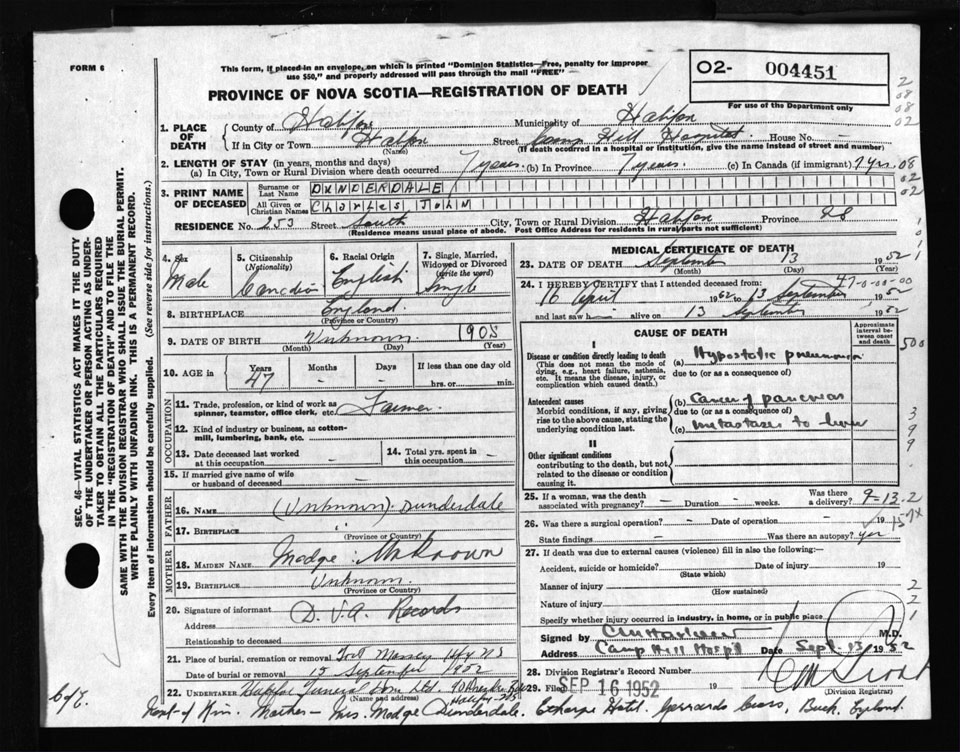 FORM 6
This form, if placed in an envelope, on which is printed "Dominion Statistics—Free, penalty for improper
use $50," and properly addressed will pass through the mail "FREE"
O2- 004451
PROVINCE OF NOVA SCOTIA—REGISTRATION OF DEATH
For use of the Department only
1. PLACE OF DEATH
County of Halifax Municipality of Halifax
If in City or Town Halifax (Name) Street Camp Hill Hospital House No. -
(If death occurred in a hospital or institution, give name instead of street and number)
2. LENGTH OF STAY (in years, months and days)
(a) In City, Town or Rural Division where death occurred 7 years. (b) In Province 7 years. (c) In Canada (if immigrant) 7 yrs
3. PRINT NAME OF DECEASED
Surname or Last Name DUNDERDALE
All Given or Christian Names Charles John
RESIDENCE No. 253 Street South City, Town or Rural Division Halifax Province NS
(Residence means usual place of abode. Post Office Address for residents in rural parts not sufficient)
4. Sex
Male
5. Citizenship
(Nationality)
Canadian
6. Racial Origin
English
7. Single, Married,
Widowed or Divorced
(write the word)
Single
8. BIRTHPLACE England
(Province or Country)
9. DATE OF BIRTH Unknown 1905
(Month) (Day) (Year)
10. AGE in
Years
47
Months
-
Days
-
If less than one day old
hrs. or min.
OCCUPATION
11. Trade, profession, or kind of work as
spinner, teamster, office clerk, etc. Farmer
12. Kind of industry or business, as cotton-
mill, lumbering, bank, etc. -
13. Date deceased last worked
at this occupation -
14. Total yrs. spent in
this occupation -
15. If married give name of wife
or husband of deceased -
FATHER
16. NAME (Unknown) Dunderdale
17. BIRTHPLACE "
(Province or Country)
MOTHER
18. MAIDEN NAME Madge Unknown
19. BIRTHPLACE Unknown
(Province or Country)
20. Signature of informant D.V.A. Records
Address
Relationship to deceased
21. Place of burial, cremation or removal Fort Massey Hfx N S
Date of burial or removal 15 September 1952
22. UNDERTAKER
(Name and address)
MEDICAL CERTIFICATE OF DEATH
23. DATE OF DEATH September 13 1952
(Month) (Day) (Year)
47-0-00-00
24. I HEREBY CERTIFY that I attended deceased from:
16 April 1952 to 13 September 1952
and last saw h alive on 13 September 1952
CAUSE OF DEATH
Approximate interval between onset and death
I
Disease or condition directly leading to death
(This does not mean the mode of
dying, e.g., heart failure, asthenia,
etc. It means the disease, injury, or
complication which caused death.)
(a) Hypostatic pneumonia
due to (or as a consequence of)
Antecedent causes
Morbid conditions, if any, giving
rise to the above cause, stating the
underlying condition last.
(b) Cancer of pancreas
due to (or as a consequence of)
(c) metastases to liver
II
Other significant conditions
contributing to the death, but not
related to the disease or condition
causing it.
25. If a woman, was the death
associated with pregnancy? - Duration - weeks. Was there a delivery?
9-13-2
26. Was there a surgical operation? - Date of operation - 19
State findings - Was there an autopsy? yes
27. If death was due to external causes (violence) fill in also the following:—
Accident, suicide or homicide? Date of injury 19
(State which)
Manner of injury
(How sustained)
Nature of injury
Specify whether injury occurred in industry, in home, or in public place
Signed by M.D.
Address Camp Hill Hosptl Date Sept. 13 1952
28. Division Registrar's Record Number
29. Filed SEP 16 1952 19
(Division Registrar)
Next of Kin. Mother - Mrs. Madge Dunderdale. Hotel. Gerrards Cross, Buck, England.
SEC. 46—VITAL STATISTICS ACT MAKES IT THE DUTY
OF THE UNDERTAKER OR PERSON ACTING AS UNDER-
TAKER TO OBTAIN ALL THE PARTICULARS REQUIRED
IN THE "REGISTRATION OF DEATH" AND TO FILE THE
SAME WITH THE DIVISION REGISTRAR WHO SHALL ISSUE THE BURIAL PERMIT.
WRITE PLAINLY WITH UNFADING INK. THIS IS A PERMANENT RECORD.
Every item of information should be carefully supplied. (See reverse side for instructions.)